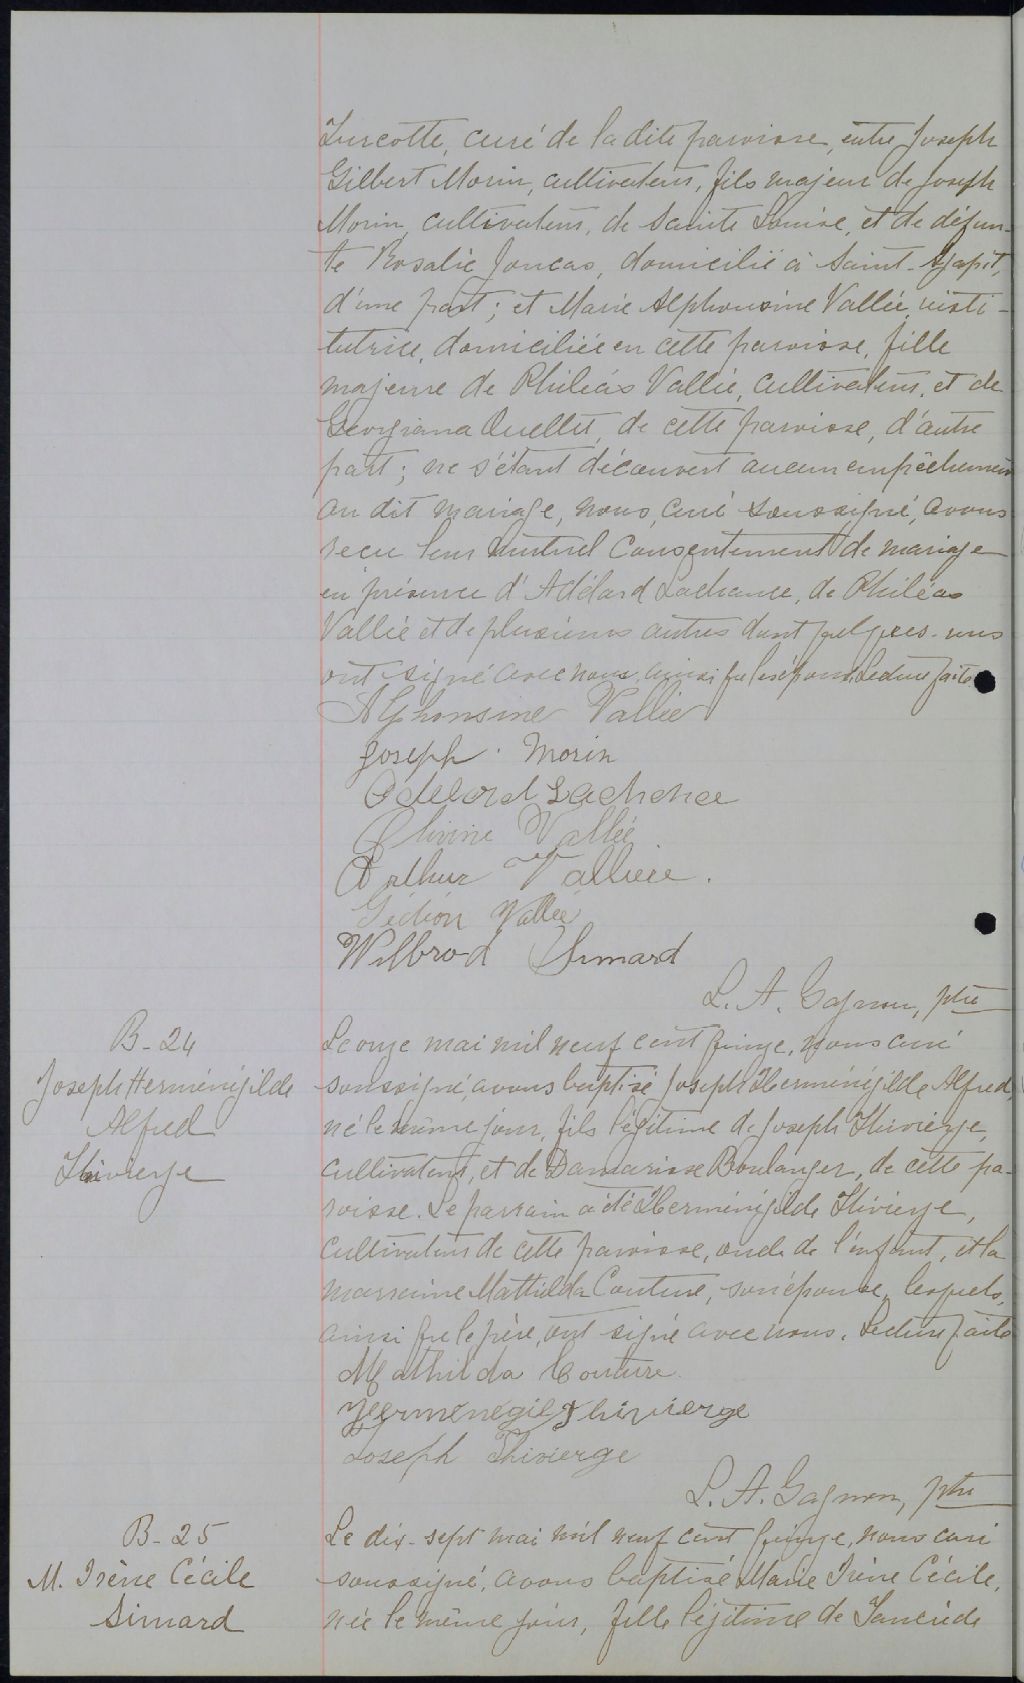 Turcotte, curé de la dite paroisse, entre Joseph
Gilbert Morin, cultivateur, fils majeur de Joseph
Morin, cultivateur, de Sainte Louise, et de défun-
te Rosalie Joncas, domicilié à Saint-Agapit,
d'une part; et Marie Alphonsine Vallée, insti-
tutrice, domiciliée en cette paroisse, fille
majeure de Philéas Vallée, cultivateur, et de
Georgiana Ouellet, de cette paroisse, d'autre
part; ne s'étant découvert aucun empêchement
au dit mariage, nous, curé soussigné, avons
reçu leur mutuel consentement de mariage
en présence d'Adélard Lachance, de Philéas
Vallée et de plusieurs autres dont quelques-uns
ont signé avec nous, ainsi que les époux. Lecture faite
Alphonsine Vallée
Joseph Morin
Odelord Lachance
Olivine Vallée
Arthur Vallière.
Gédéon Vallée
Wilbrod Simard
L. A. Gagnon, ptre
B-24
Joseph Herménégilde
Alfred
Thivierge
Le onze mai mil neuf cent quinze, nous curé
soussigné, avons baptisé Joseph Herménégilde Alfred,
né le même jour, fils légitime de Joseph Thivierge,
cultivateur, et de Damarisse Boulanger, de cette pa-
roisse. Le parrain a été Herménégilde Thivierge,
cultivateur de cette paroisse, oncle de l'enfant, et la
marraine Mathilda Couture, son épouse, lesquels,
ainsi que le père, ont signé avec nous. Lecture faite
Mathilda Couture
Herménégild Thivierge
Joseph Thivierge
L. A. Gagnon, ptre
B-25
M. Irène Cécile
Simard
Le dix-sept mai mil neuf cent quinze, nous curé
soussigné, avons baptisé Marie Irène Cécile,
née le même jour, fille légitime de Tancrède